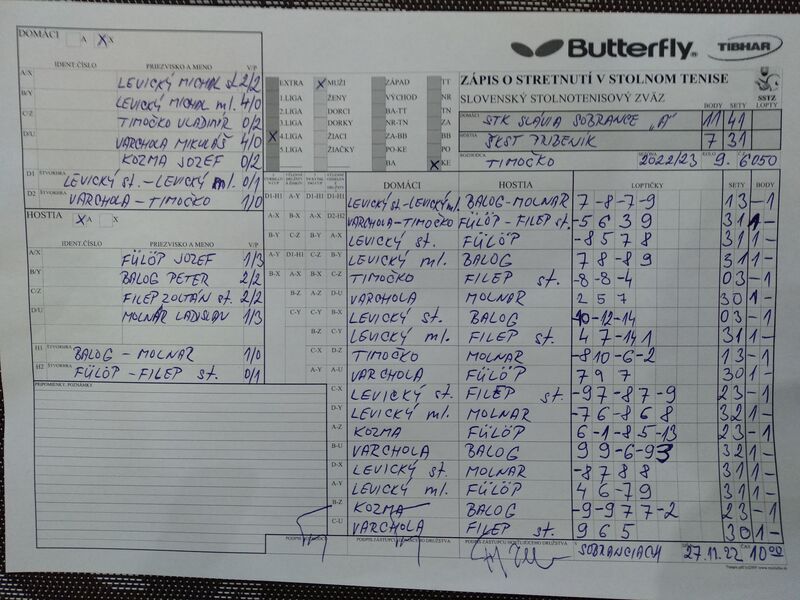 DOMÁCI A X X
IDENT.ČÍSLO PRIEZVISKO A MENO V/P
A/X LEVICKÝ MICHAL st. 2/2
B/Y LEVICKÝ MICHAL ml. 4/0
C/Z TIMOČKO VLADIMÍR 0/2
D/U VARCHOLA MIKULÁŠ 4/0
KOZMA JOZEF 0/2
D1 ŠTVORHRA LEVICKÝ st.-LEVICKÝ ml. 0/1
D2 ŠTVORHRA VARCHOLA-TIMOČKO 1/0
HOSTIA X A X
IDENT.ČÍSLO PRIEZVISKO A MENO V/P
A/X FÜLÖP JOZEF 1/3
B/Y BALOG PETER 2/2
C/Z FILEP ZOLTÁN st. 2/2
D/U MOLNÁR LADISLAV 1/3
H1 ŠTVORHRA BALOG - MOLNÁR 1/0
H2 ŠTVORHRA FÜLÖP - FILEP st. 0/1
PRIPOMIENKY, POZNÁMKY
Butterfly TIBHAR
EXTRA X MUŽI ZÁPAD TT
1.LIGA ŽENY VÝCHOD NR
2.LIGA DORCI BA-TT ZA
3.LIGA DORKY NR-TN ZA
X 4.LIGA ŽIACI ZA-BB BB
5.LIGA ŽIAČKY PO-KE PO
BA X KE
ZÁPIS O STRETNUTÍ V STOLNOM TENISE
SLOVENSKÝ STOLNOTENISOVÝ ZVÄZ SSTZ
BODY SETY LOPTY
DOMÁCI STK SLAVIA SOBRANCE "A" 11 41
HOSTIA ŠKST TREBENÍK 7 31
ROZHODCA TIMOČKO SEZÓNA 2022/23 9. 6050
DOMÁCI HOSTIA LOPTIČKY SETY BODY
D1-H1 A-Y D1-H1 D1-H1 LEVICKÝ st.-LEVICKÝ ml. BALOG-MOLNÁR 7 -8 -7 -9 1 3 - 1
A-X B-X A-X D2-H2 VARCHOLA-TIMOČKO FÜLÖP-FILEP st. -5 6 3 9 3 1 1 -
B-Y C-Z B-Y A-X LEVICKÝ st. FÜLÖP -8 5 7 8 3 1 1 -
A-Y D1-H1 C-Z B-Y LEVICKÝ ml. BALOG 7 8 -8 9 3 1 1 -
B-X A-X B-X C-Z TIMOČKO FILEP st. -8 -8 -4 0 3 - 1
B-Z A-Z D-U VARCHOLA MOLNÁR 2 5 7 3 0 1 -
C-Y C-X A-Y LEVICKÝ st. BALOG -10 -12 -14 0 3 - 1
B-Y B-Z LEVICKÝ ml. FILEP st. 4 7 -14 1 3 1 1 -
C-X C-U TIMOČKO MOLNÁR -8 10 -6 -2 1 3 - 1
A-Y D-X VARCHOLA FÜLÖP 7 9 7 3 0 1 -
LEVICKÝ st. FILEP st. -9 7 -8 7 -9 2 3 - 1
D-Y LEVICKÝ ml. MOLNÁR -7 6 -8 6 8 3 2 1 -
KOZMA FÜLÖP 6 -1 -8 5 -13 2 3 - 1
VARCHOLA BALOG 9 9 -6 -9 3 3 2 1 -
LEVICKÝ st. MOLNÁR -8 7 8 8 3 1 1 -
LEVICKÝ ml. FÜLÖP 4 6 -7 9 3 1 1 -
B-Z KOZMA BALOG -9 -9 7 7 -2 2 3 - 1
C-U VARCHOLA FILEP st. 9 6 5 3 0 1 -
PODPIS ZÁSTUPCU DOMÁCEHO DRUŽSTVA PODPIS ZÁSTUPCU HOSŤUJÚCEHO DRUŽSTVA V SOBRANCIACH 27.11.22 10:00